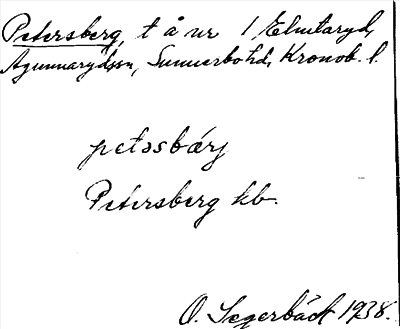 Petersberg, t å nr 1 Elmtaryd,
Agunnarydssn, Sunnerbo hd, Kronob. l.
petəsbärj
Petersberg kb.
O. Segerbäck 1938.